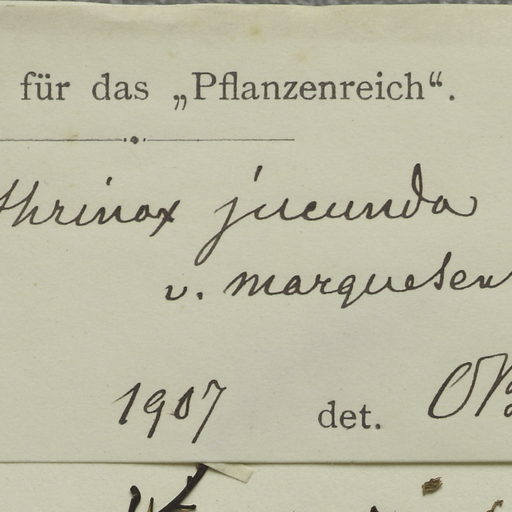 für das „Pflanzenreich“.
thrinax jucunda
v. marquesen
1907 det. OB